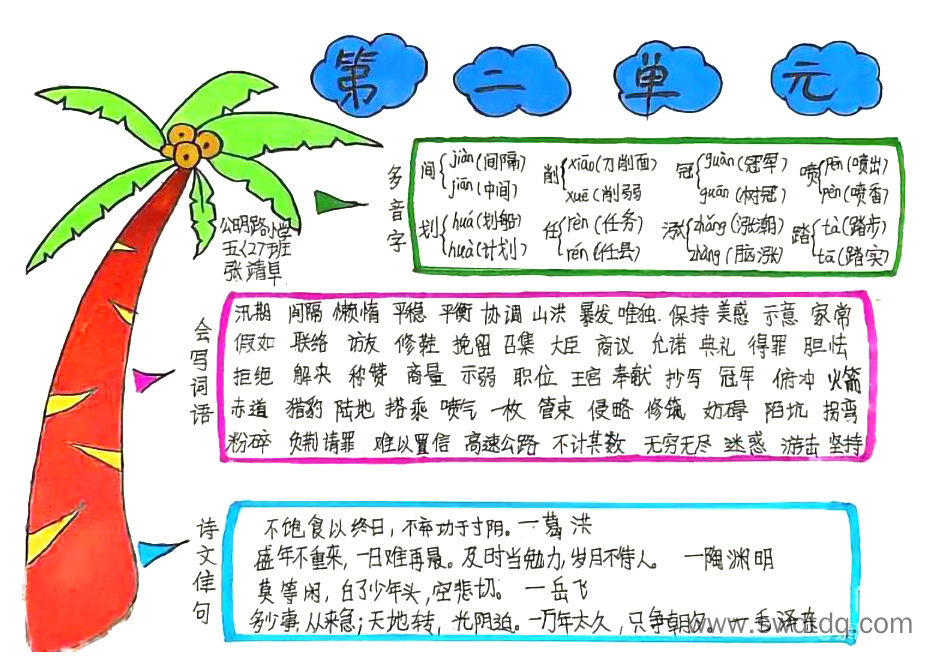 第二单元
公明路小学
五〈27班
张靖早
多音字
间 jiàn(间隔) jiān(中间) 削 xiāo(刀削面) xuē(削弱) 冠 guàn(冠军) guān(树冠) 喷 pēn(喷出) pèn(喷香)
划 huá(划船) huà(计划) 任 rèn(任务) rén(任县) 涨 zhǎng(涨潮) zhàng(脑涨) 踏 tà(踏步) tā(踏实)
会写词语
汛期 间隔 懒惰 平稳 平衡 协调 山洪 暴发 唯独 保持 美感 示意 家常
假如 联络 访友 修鞋 挽留 召集 大臣 商议 允诺 典礼 得罪 胆怯
拒绝 解决 称赞 商量 示弱 职位 王宫 奉献 抄写 冠军 俯冲 火箭
赤道 猎豹 陆地 搭乘 喷气 一枚 管束 侵略 修筑 妨碍 陷坑 拐弯
粉碎 负荆请罪 难以置信 高速公路 不计其数 无穷无尽 迷惑 游击 坚持
诗文佳句
不饱食以终日，不弃功于寸阴。—葛洪
盛年不重来，一日难再晨。及时当勉力，岁月不待人。—陶渊明
莫等闲，白了少年头，空悲切。—岳飞
多少事，从来急；天地转，光阴迫。一万年太久，只争朝夕。—毛泽东